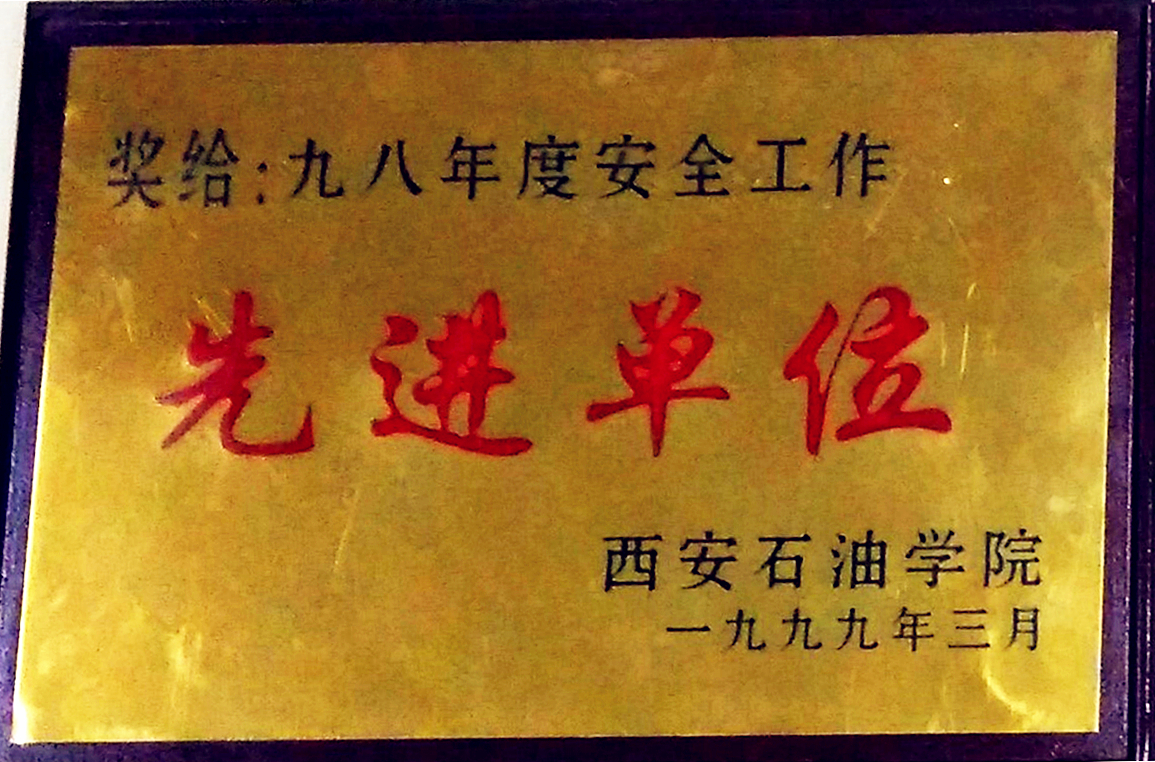 奖给:九八年度安全工作
先进单位
西安石油学院
一九九九年三月